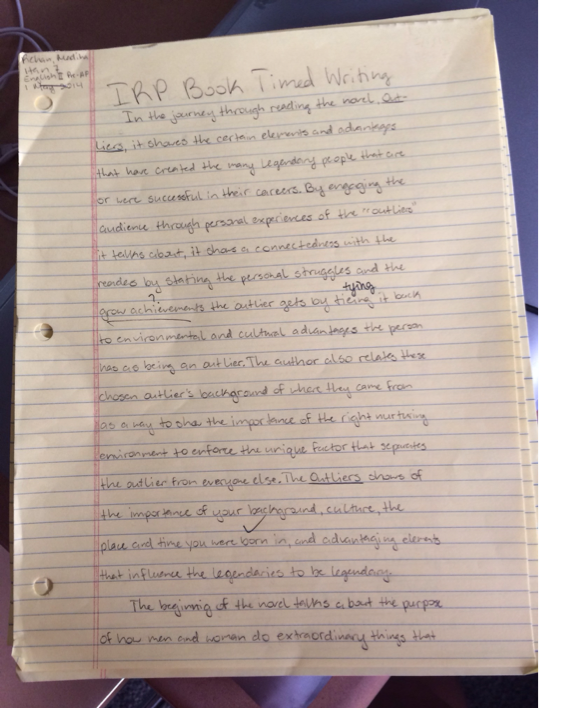 English II Pre-AP
IRP Book Timed Writing
In the journey through reading the novel Out-
liers, it shows the certain elements and advantages
that have created the many legendary people that are
or were successful in their careers. By engaging the
audience through personal experiences of the "outlier"
it talks about, it shows a connectedness with the
reader by stating the personal struggles and the
tying
?
grow achievements the outlier gets by tieing it back
to environmental and cultural advantages the person
has as being an outlier. The author also relates these
chosen outlier's background of where they came from
as a way to show the importance of the right nurturing
environment to enforce the unique factor that separates
the outlier from everyone else. The Outliers shows of
the importance of your background, culture, the
place and time you were born in, and advantaging elements
that influence the legendaries to be legendary.
The beginnig of the novel talks about the purpose
of how men and woman do extraordinary things that